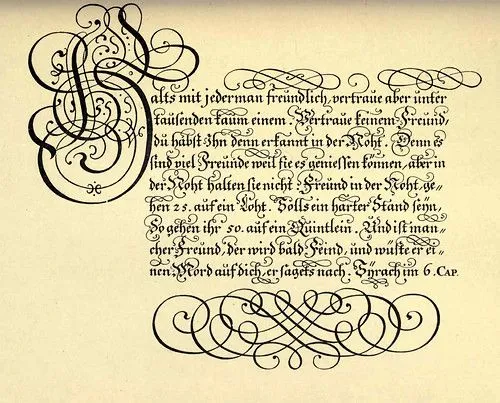 Halts mit jederman freundlich, vertraue aber unter
tausenden kaum einem. Vertraue keinem Freund,
du habst Ihn denn erkannt in der Noht. Denn es
sind viel Freunde weil sie es geniessen können, aber in
der Noht halten sie nicht: Freund in der Noht, ge=
hen 25. auf ein Loht. Solls ein harter Stand seyn,
So gehen ihr 50. auf ein Quintlein. Und ist man=
cher Freund, der wird bald Feind, und wüste er ei=
nen Mord auf dich, er sagets nach. Syrach im 6. CAP.